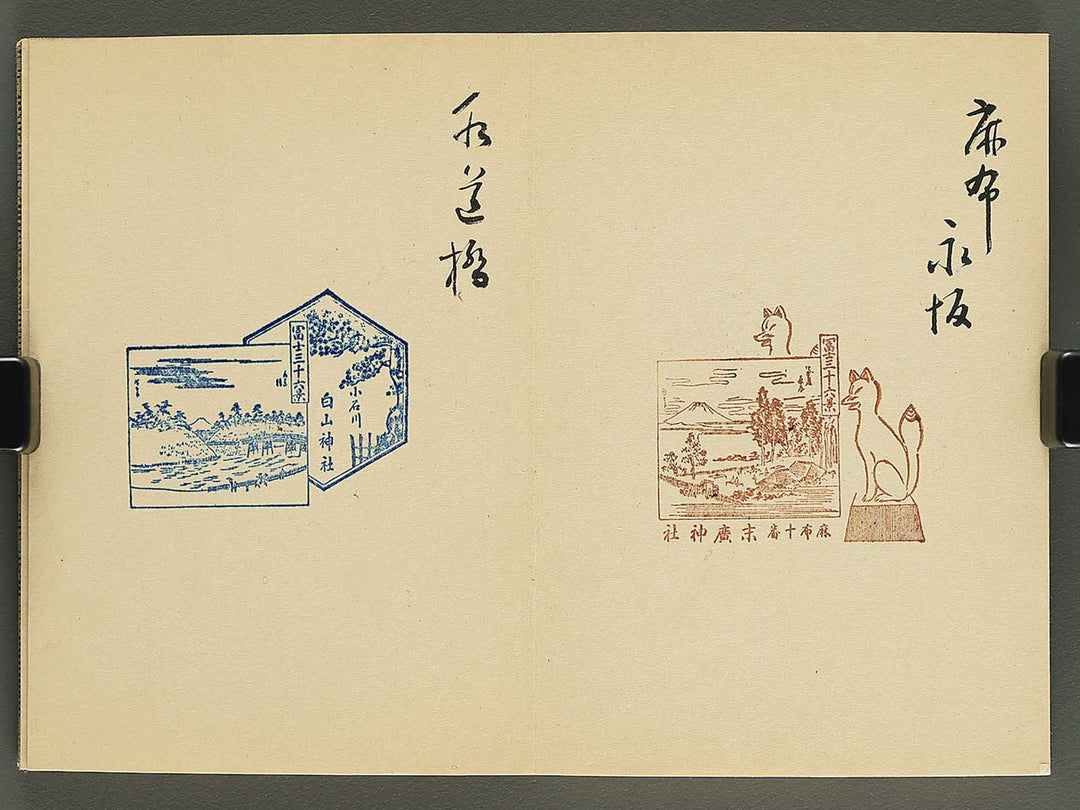 麻布
永坂
冨士三十六景
麻布十番 末廣神社
水道橋
冨士三十六景
小石川
白山神社